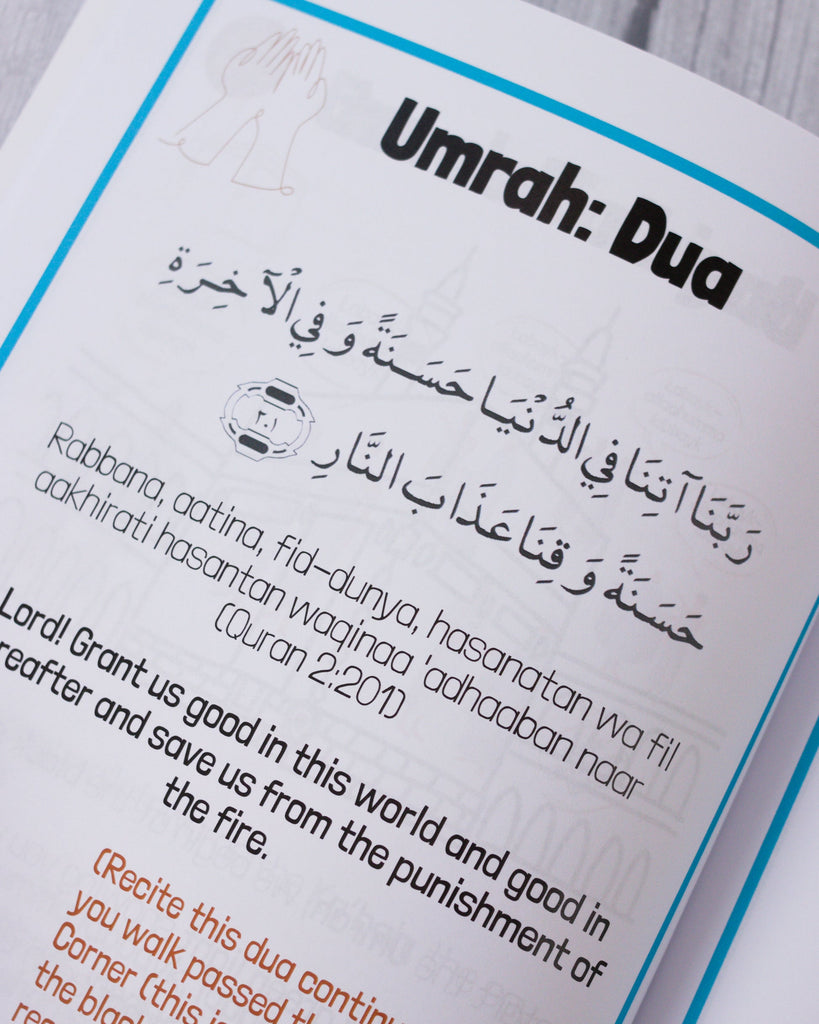 Umrah: Dua
رَبَّنَا آتِنَا فِي الدُّنْيَا حَسَنَةً وَ فِي الْآخِرَةِ
حَسَنَةً وَ قِنَا عَذَابَ النَّارِ ٢٠١
Rabbana, aatina, fid-dunya, hasanatan wa fil
aakhirati hasantan waqinaa 'adhaaban naar
(Quran 2:201)
Lord! Grant us good in this world and good in
reafter and save us from the punishment of
the fire.
(Recite this dua continu
you walk passed th
Corner (this is
the blac